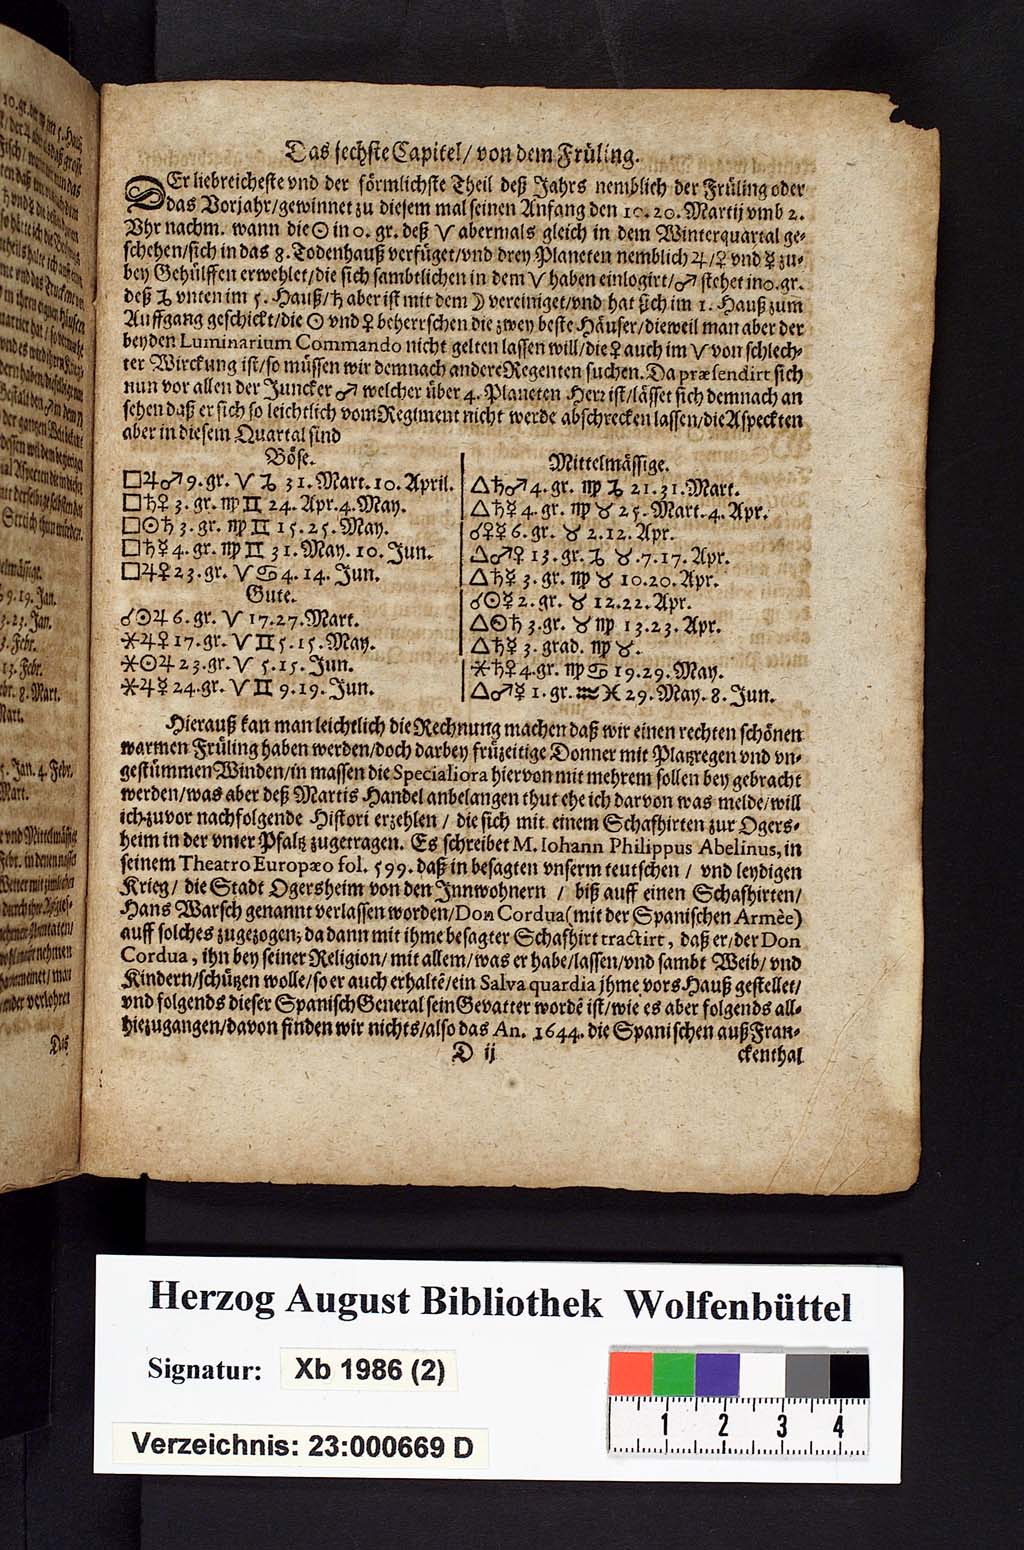 Das sechste Capitel/ von dem Früling.
DEr liebreicheste vnd der förmlichste Theil deß Jahrs nemblich der Früling oder
das Vorjahr/gewinnet zu diesem mal seinen Anfang den 10. 20. Martij vmb 2.
Vhr nachm. wann die ☉ in 0. gr. deß ♈ abermals gleich in dem Winterquartal ge-
schehen/sich in das 8. Todenhauß verfüget/vnd drey Planeten nemblich ♃/♀ vnd ☿ zu-
bey Gehülffen erwehlet/die sich sambtlichen in dem ♈ haben einlogirt/♂ stehet in 0. gr.
deß ♑ vnten im 5. Hauß/♄ aber ist mit dem ☽ vereiniget/vnd hat sich im 1. Hauß zum
Auffgang geschickt/die ☉ vnd ♀ beherrschen die zwey beste Häuser/dieweil man aber der
beyden Luminarium Commando nicht gelten lassen will/die ♀ auch im ♈ von schlech-
ter Wirckung ist/so müssen wir demnach andere Regenten suchen. Da præsendirt sich
nun vor allen der Juncker ♂ welcher über 4. Planeten Herr ist/lässet sich demnach an
sehen daß er sich so leichtlich vom Regiment nicht werde abschrecken lassen/die Aspeckten
aber in diesem Quartal sind
Böse.
□♃♂ 9. gr. ♈ ♑ 31. Mart. 10. April.
□♄♀ 3. gr. ♍ ♊ 24. Apr. 4. May.
□☉♄ 3. gr. ♍ ♊ 15. 25. May.
□♄☿ 4. gr. ♍ ♊ 31. May. 10. Jun.
□♃♀ 23. gr. ♈ ♋ 4. 14. Jun.
Gute.
☌☉♃ 6. gr. ♈ 17. 27. Mart.
⚹♃♀ 17. gr. ♈ ♊ 5. 15. May.
⚹☉♃ 23. gr. ♈ 5. 15. Jun.
⚹♃☿ 24. gr. ♈ ♊ 9. 19. Jun.
Mittelmässige.
△♄♂ 4. gr. ♍ ♑ 21. 31. Mart.
△♄☿ 4. gr. ♍ ♉ 25. Mart. 4. Apr.
☌♀☿ 6. gr. ♉ 2. 12. Apr.
△♂♀ 13. gr. ♑ ♉. 7. 17. Apr.
△♄☿ 3. gr. ♍ ♉ 10. 20. Apr.
☌☉☿ 2. gr. ♉ 12. 22. Apr.
△☉♄ 3. gr. ♉ ♍ 13. 23. Apr.
△♄☿ 3. grad. ♍ ♉.
⚹♄♀ 4. gr. ♍ ♋ 19. 29. May.
△♂☿ 1. gr. ♒ ♓ 29. May. 8. Jun.
Hierauß kan man leichtlich die Rechnung machen daß wir einen rechten schönen
warmen Früling haben werden/doch darbey früzeitige Donner mit Platzregen vnd vn-
gestümmen Winden/in massen die Specialiora hiervon mit mehrem sollen bey gebracht
werden/was aber deß Martis Handel anbelangen thut ehe ich darvon was melde/will
ich zuvor nachfolgende Histori erzehlen / die sich mit einem Schafhirten zur Ogers-
heim in der vnter Pfaltz zugetragen. Es schreibet M. Iohann Philippus Abelinus, in
seinem Theatro Europæo fol. 599. daß in besagten vnserm teutschen / vnd leydigen
Krieg/ die Stadt Ogersheim von den Innwohnern / biß auff einen Schafhirten/
Hans Warsch genannt verlassen worden/Don Cordua (mit der Spanischen Armèe)
auff solches zugezogen; da dann mit ihme besagter Schafhirt tractirt, daß er/der Don
Cordua, ihn bey seiner Religion/ mit allem/was er habe/lassen/vnd sambt Weib/ vnd
Kindern/schützen wolle/so er auch erhaltē/ein Salva quardia jhme vors Hauß gestellet/
vnd folgends dieser Spanisch General sein Gevatter wordē ist/wie es aber folgends all-
hie zugangen/davon finden wir nichts/also das An. 1644. die Spanischen auß Fran-
D ij
ckenthal
9. 19. Jan.
13. Febr.
8. Mart.
Mart.
Jan. 4. Febr.
Mart.
Das
Herzog August Bibliothek Wolfenbüttel
Signatur: Xb 1986 (2)
Verzeichnis: 23:000669 D
1 2 3 4